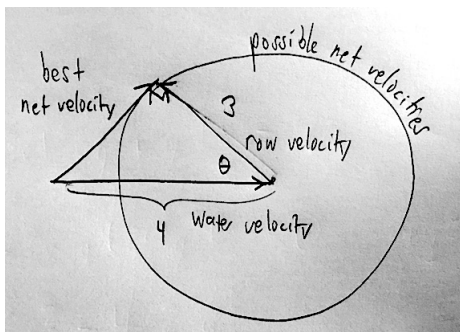 possible net velocities
best
net velocity
3
row velocity
θ
4
water velocity